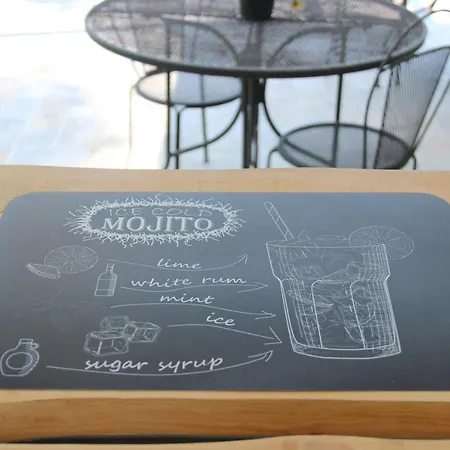 ICE COLD
MOJITO
lime
white rum
mint
ice
sugar syrup